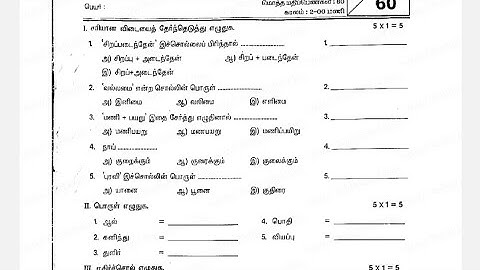 பெயர் :
மொத்த மதிப்பெண்கள் : 60
காலம் : 2-00 மணி
60
I. சரியான விடையைத் தேர்ந்தெடுத்து எழுதுக. 5 X 1 = 5
1. 'சிறப்படைந்தேன்' இச்சொல்லைப் பிரித்தால்
அ) சிறப்பு + அடைந்தேன் ஆ) சிறப் + படைந்தேன்
இ) சிறப்+அடைந்தேன்
2. 'வல்லமை' என்ற சொல்லின் பொருள்
அ) இனிமை ஆ) வலிமை இ) எளிமை
3. 'மணி + பயறு' இதை சேர்த்து எழுதினால்
அ) மணிபயறு ஆ) மணபயறு இ) மணிப்பயிறு
4. நாய்
அ) குரைக்கும் ஆ) குரைக்கும் இ) குலைக்கும்
5. 'புரவி' இச்சொல்லின் பொருள்
அ) யானை ஆ) பூனை இ) குதிரை
II. பொருள் எழுதுக. 5 X 1 = 5
1. ஆல் = 4. பொதி =
2. கனிந்து = 5. வியப்பு =
3. துளிர் =
III. எதிர்ச்சொல் எழுதுக. 5 X 1 = 5